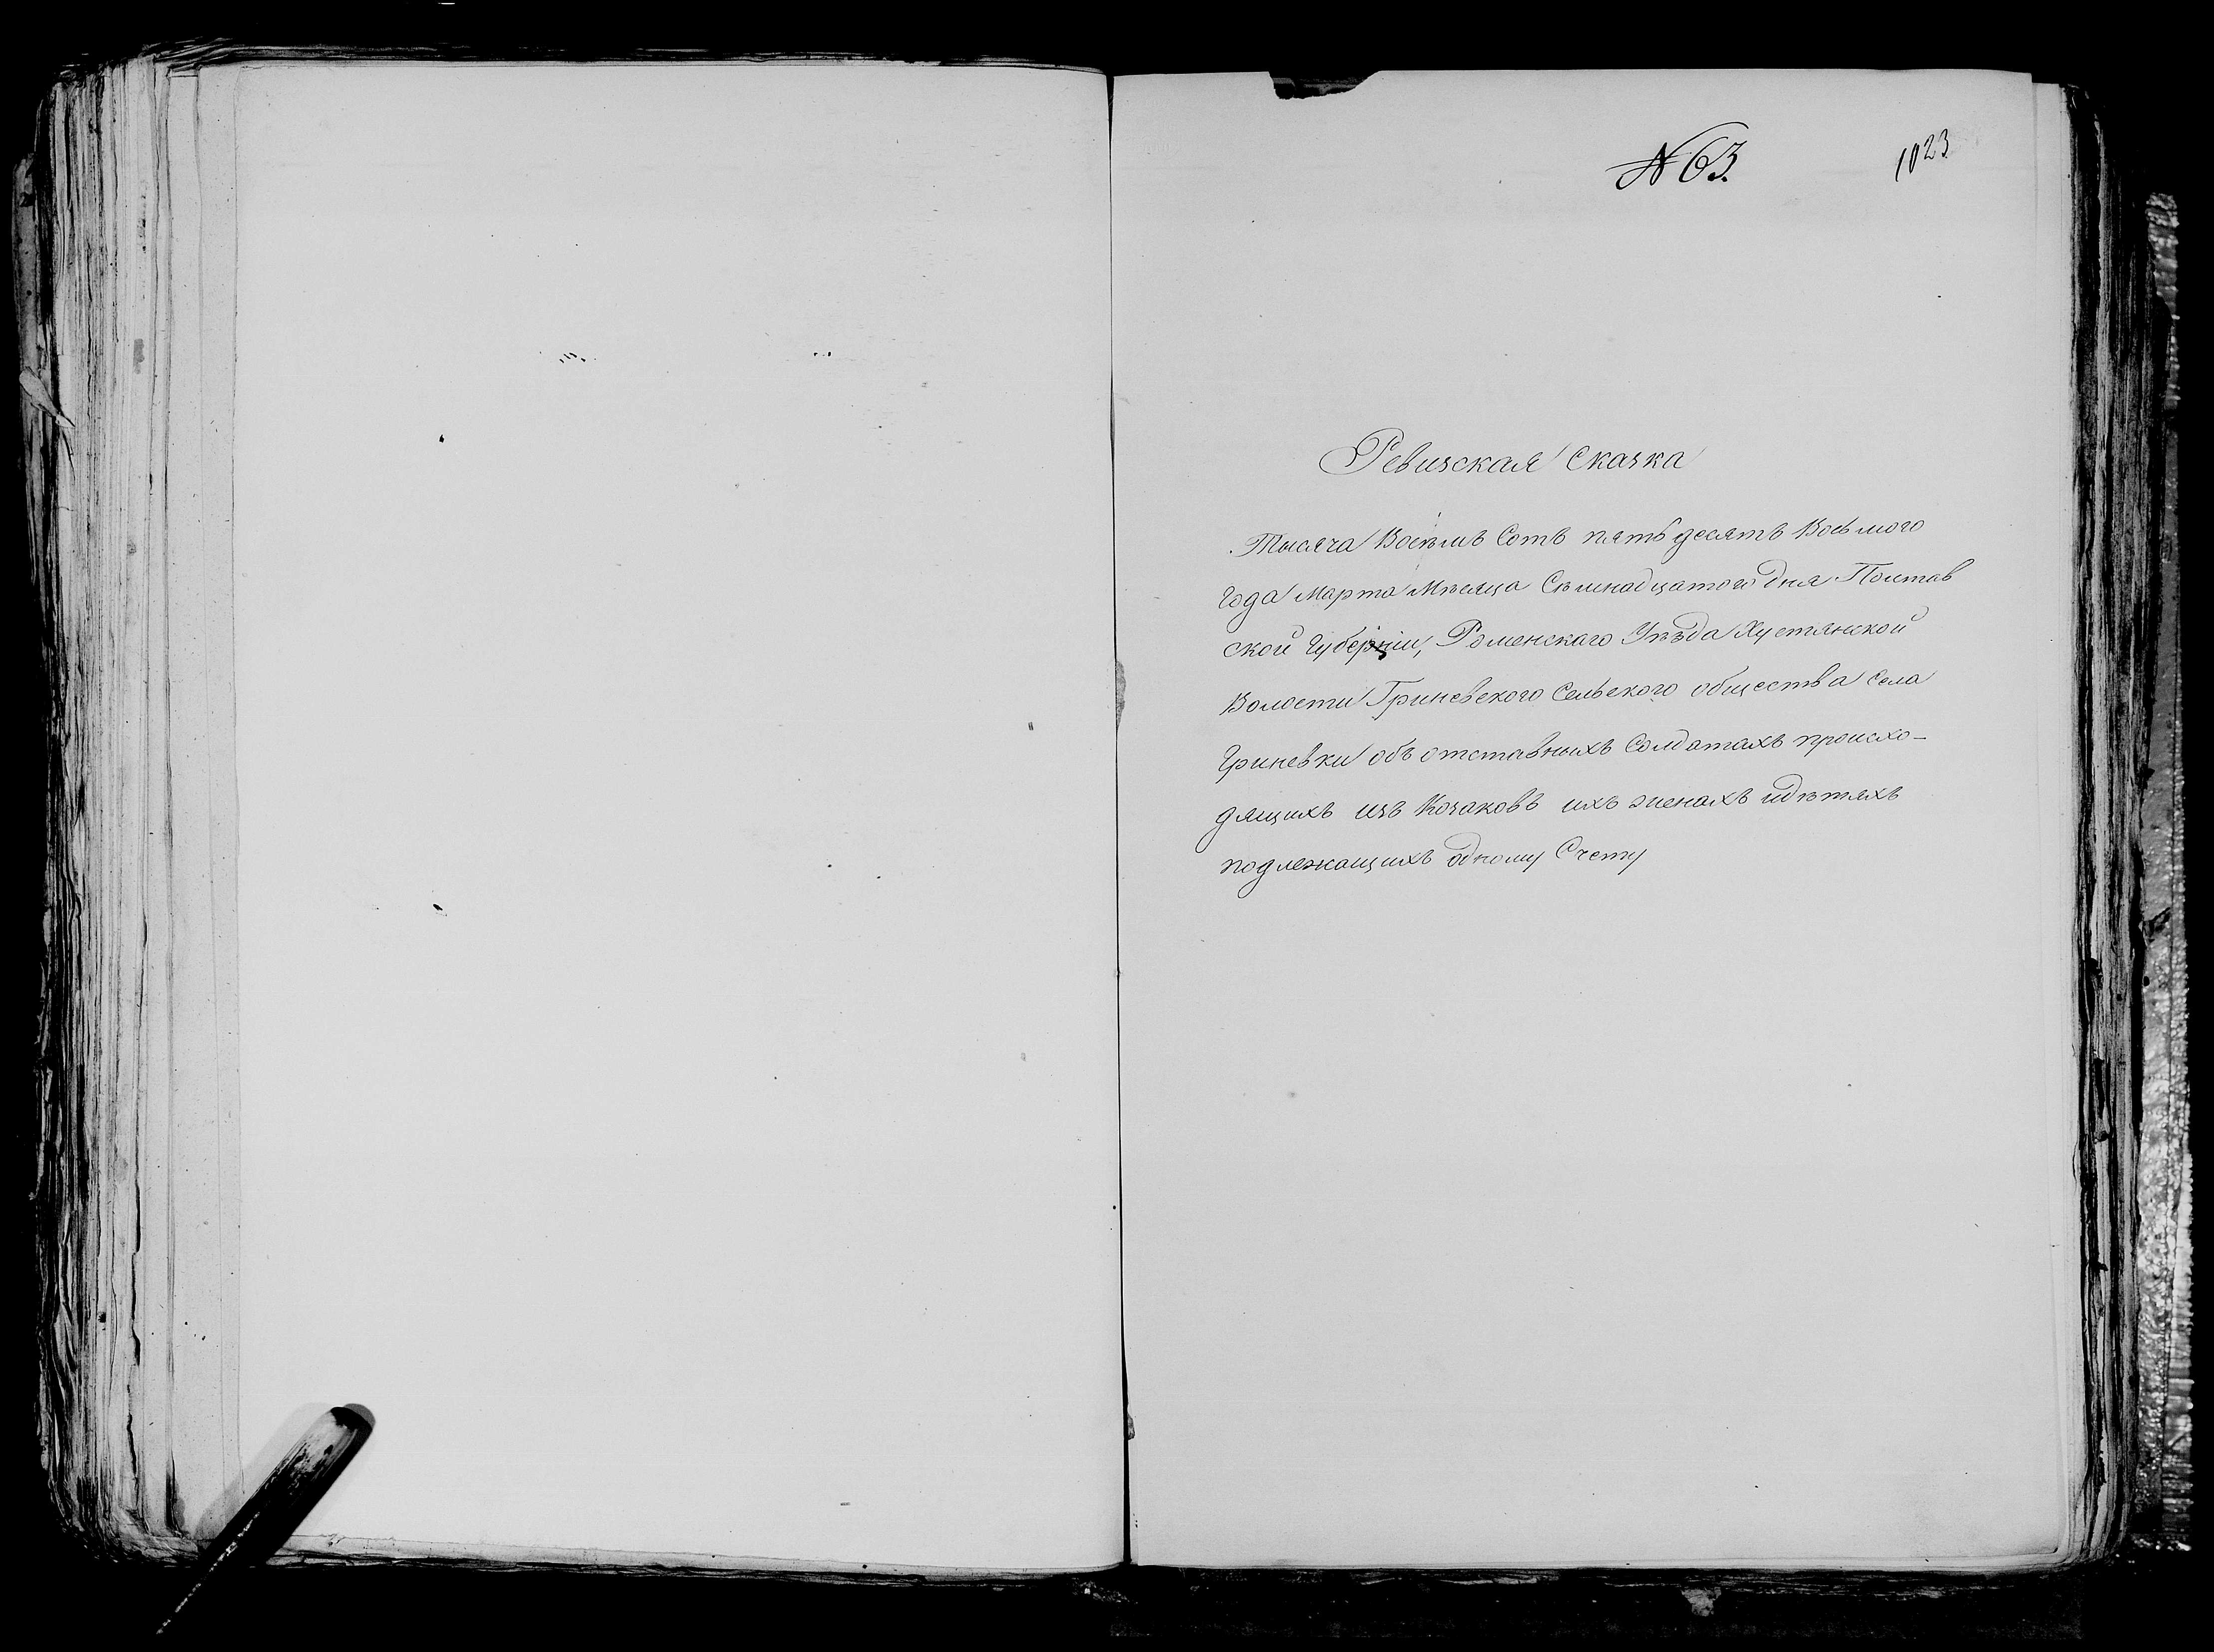 № 63.
1023
Ревизская сказка
Тысяча Восѣмъ Сотъ пятьдесятъ Восьмого
года Марта Мѣсяца Сѣмнадцатого дня Полтав
ской Губерніи, Роменскаго Уѣзда Хустянской
Волости Гриневского Сельского общества Села
Гриневки объ отставныхъ Солдатахъ происхо-
дящихъ изъ Козаковъ ихъ женахъ идѣтяхъ
подлежащихъ одному Счету